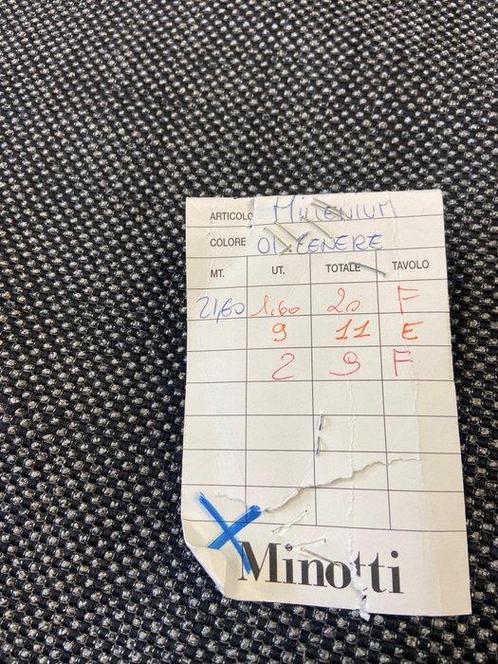 ARTICOLO MILLENIUM
COLORE 01 CENERE
MT. UT. TOTALE TAVOLO
21,60 1,60 20 F
9 11 E
2 9 F
X
Minotti